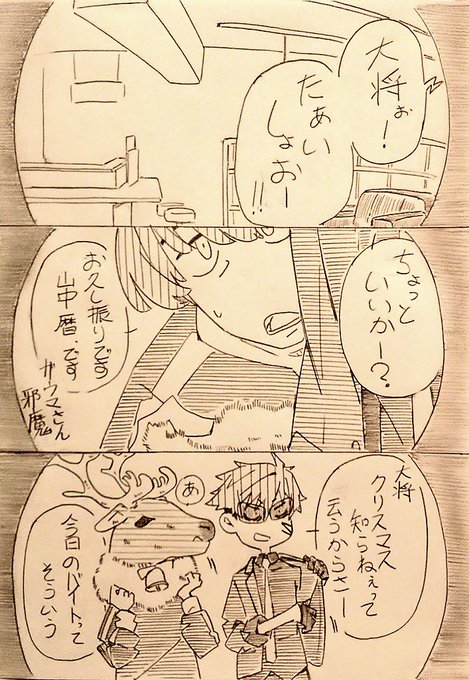 大将ぉー!
たぁい
しょおー
!!
ちょっと
いいかー?
お久し振りです
山中暦.です
ガウマさん
邪魔
大将
クリスマス
知らねぇって
云うからさー
あ
今日のバイトって
そういう